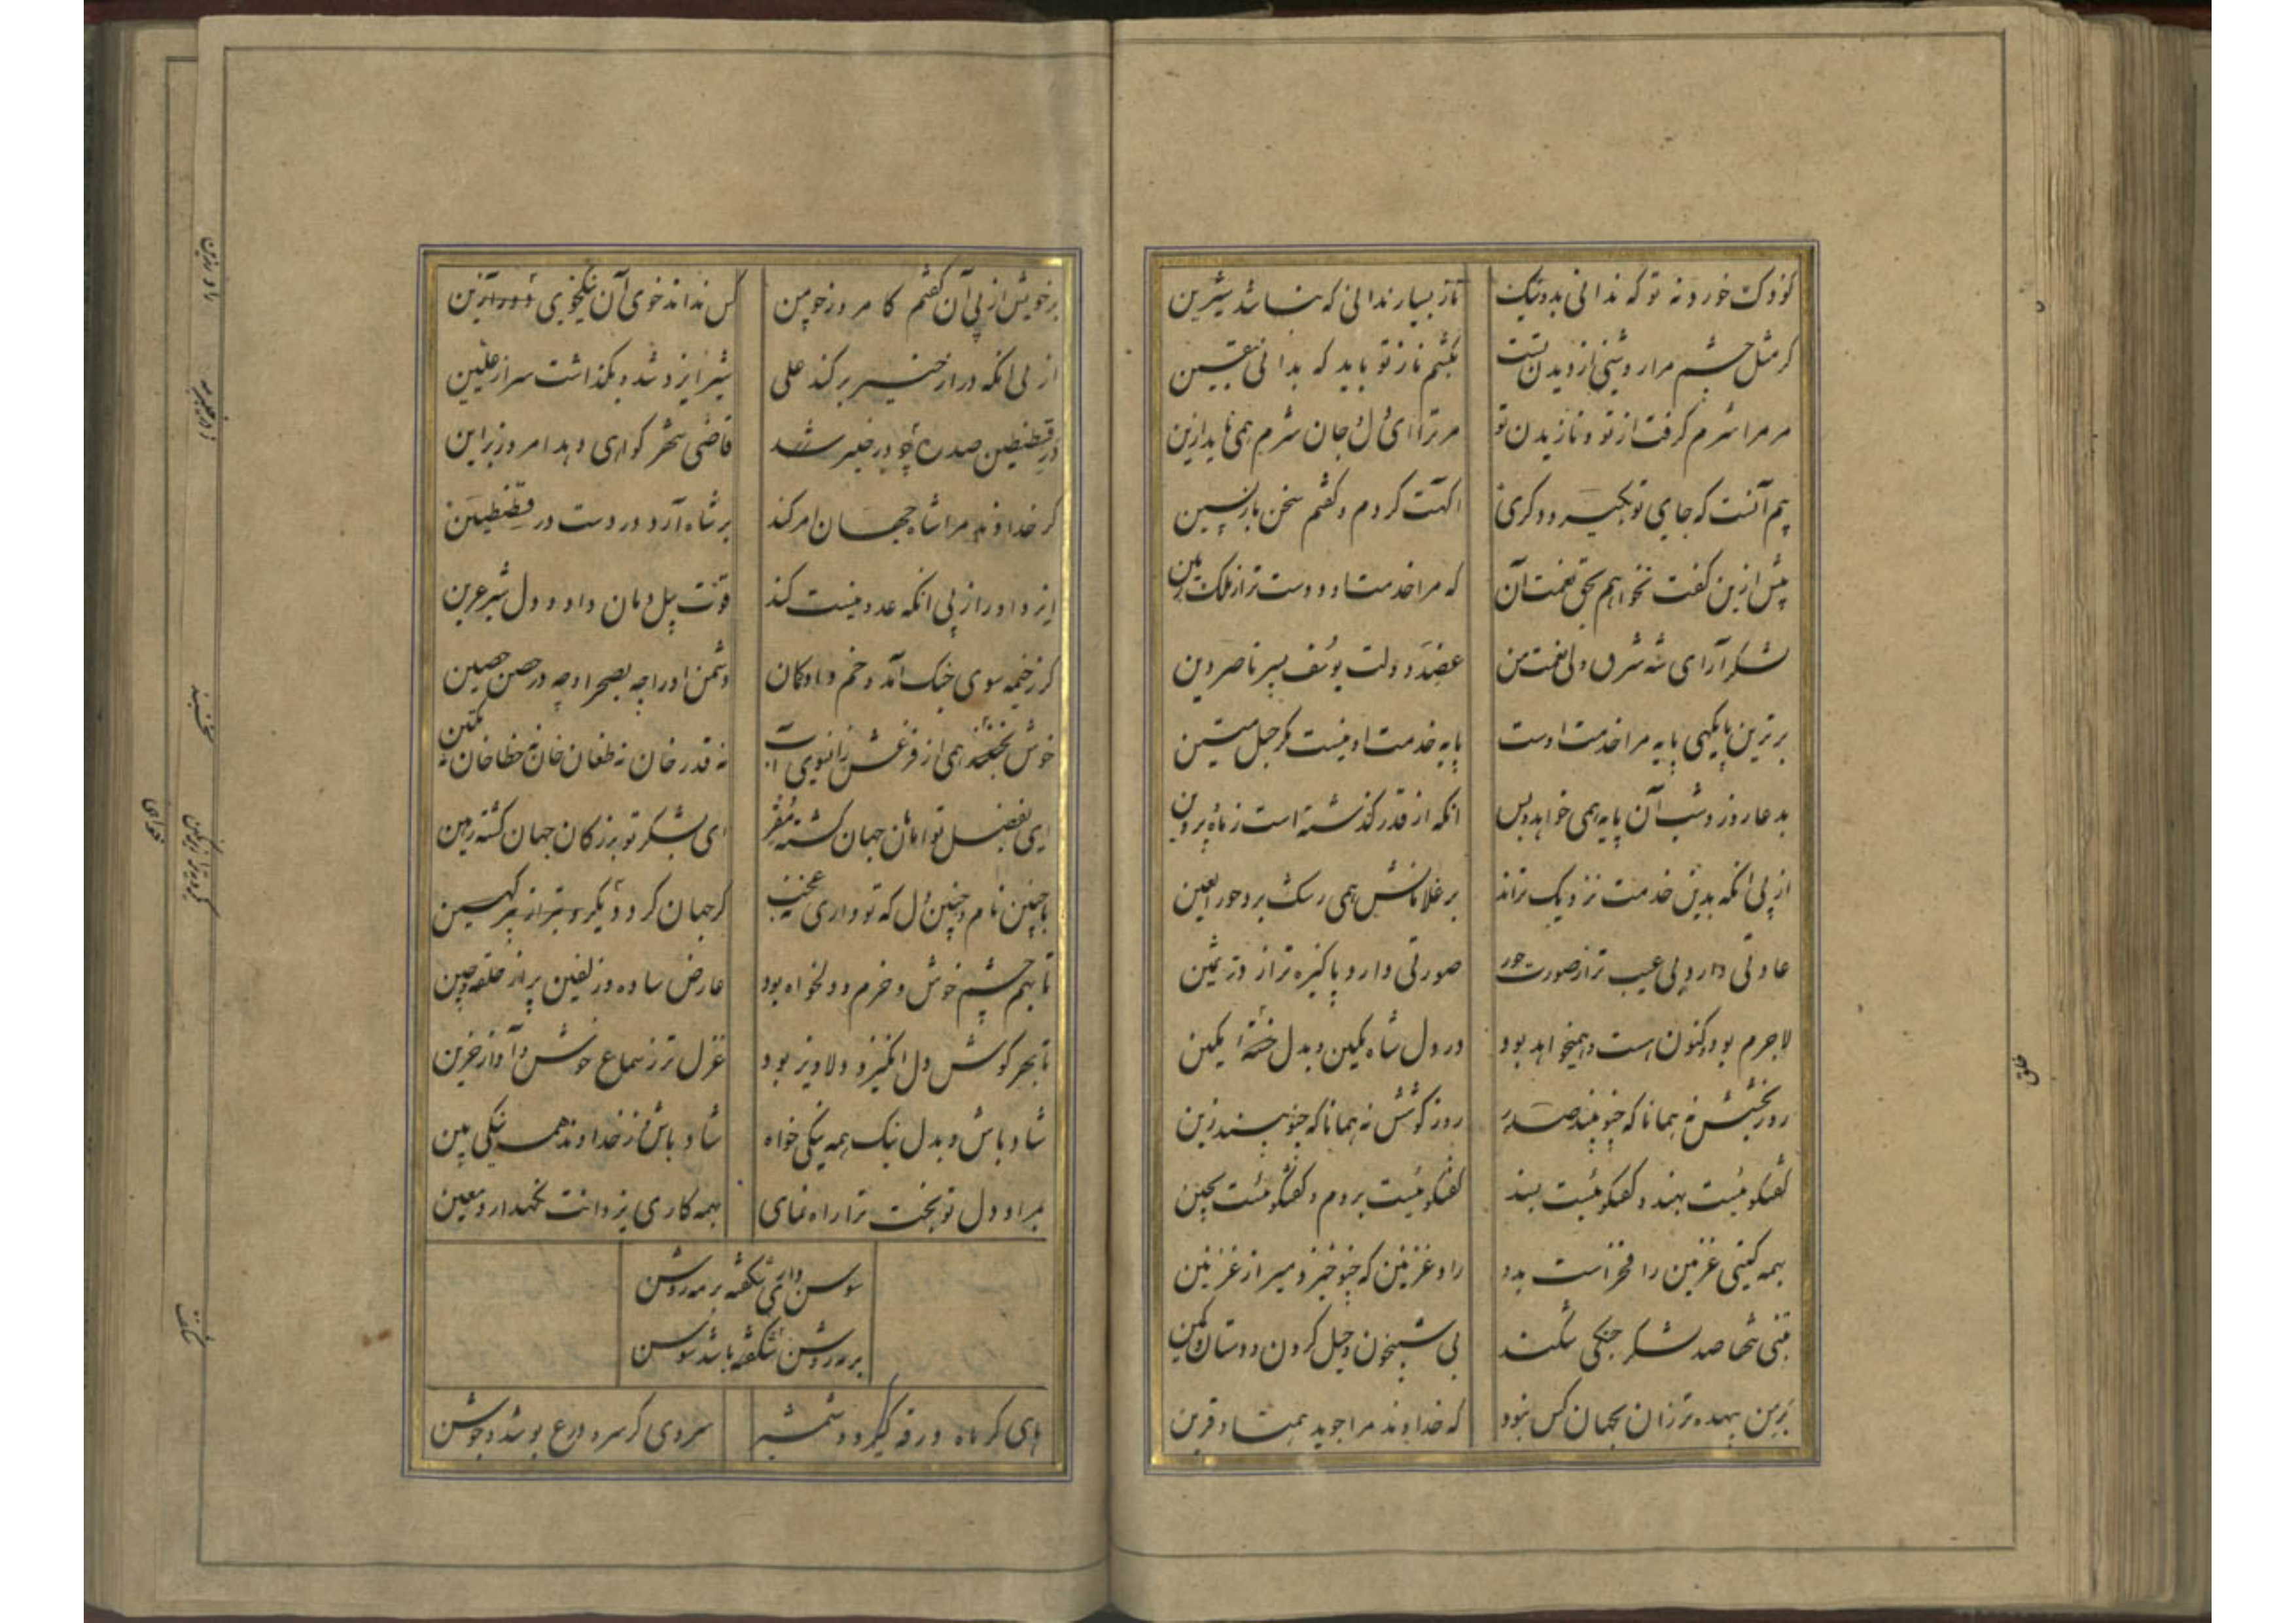 کودک خورد نه تو که ندانی بد و نیک ناز بسیار ندانی که نباشد شیرین
کر مثل چشم مرا روشنی از دیدن تست نکشم ناز تو باید که بدانی بیقین
مر مرا شرم کرفت از تو و نازیدن تو مر ترا ای دل و جان شرم همی ناید ازین
بیم آنست که جای تو بکیرد دکری اکهت کردم و کفتم سخن بازپسین
پیش ازین کفت نخواهم بحق نعمت آن که مرا خدمت او دوست تر از ملک زمین
لشکر آرای شه شرق ولی نعمت من عضد دولت یوسف پسر ناصر دین
برترین پایکهی پایه مرا خدمت اوست پایه خدمت او نیست مکر حبل متین
بدعا روز و شب آن پایه همی خواهد و بس انکه از قدر کذشته است ز ماه و پروین
از پی انکه بدین خدمت نزدیک ترند بر غلامانش همی رشک برد حور العین
عادتی دارد بی عیب تر از صورت حور صورتی دارد پاکیزه تر از در ثمین
لاجرم بود و کنون است و همیخواهد بود در دل شاه مکین و بدل مکین
روز بخشش نه همانا که چنو بیند صدر روز کوشش نه همانا که چنو بیند زین
کفتکو نیست بهند و کفتکو نیست بسند کفتکو نیست بروم و کفتکو نیست بچین
بهمه کیتی غزنین را فخر است بدو راد غزنین که چنو خیزد میر از غزنین
بتنی تنها صد لشکر جنکی شکند بی شبیخون و حیل کردن و دستان و کمین
زمن بیهده تر زان بجهان کس نبود که خداوند مرا جوید همتا و قرین
بر خویش از پی آن کفتم کامروز چو من کس نداند خوی آن نیکخوی
از پی انکه در از خیبر برکند علی شیر ایزد شد و بکذاشت سر از علیین
در قسطنطین صد ره چو در خیبر شد قاضی شهر کواهی دهد امروز براین
کر خداوند مرا شاه جهان امر کند بر شاه آرد در دست در قسطنطین
ایزد او را از پی انکه عدو نیست کند قوت پیل دمان داد و دل شیر عرین
کرز خیمه سوی جنک آمد و خم داد کمان دشمن او را چه بصحرا و چه در حصن حصین
خوش نخسبند همی از فزعش زانسوی آب نه قدر خان نه طغان خان نه خطا خان نه تکین
ای بفضل تو امامان جهان کشته مقر ای بشکر تو بزرکان جهان کشته رهین
با چنین نام و چنین دل که تو داری کر جهان کرد
تا بهر چشم خوش و خرم و دلخواه بود عارض ساده و زلفین پر از حلقه و چین
تا بهر کوش دل انکیز و دلاویز بود غزل تر ز سماع خوش و آواز حزین
شاد باش و بدل نیک همه نیکی خواه شاد باش و ز خداوند همه نیکی بین
بمراد دل تو بخت ترا راه نمای بهمه کاری یزدانت نکهدار و معین
سوسن داری شکفته بر مه روشن
بر مه روشن شکفته باشد سوسن
ماهی کر ماه درقه کیرد و شمشیر سروی کر سرو درع پوشد و جوشن